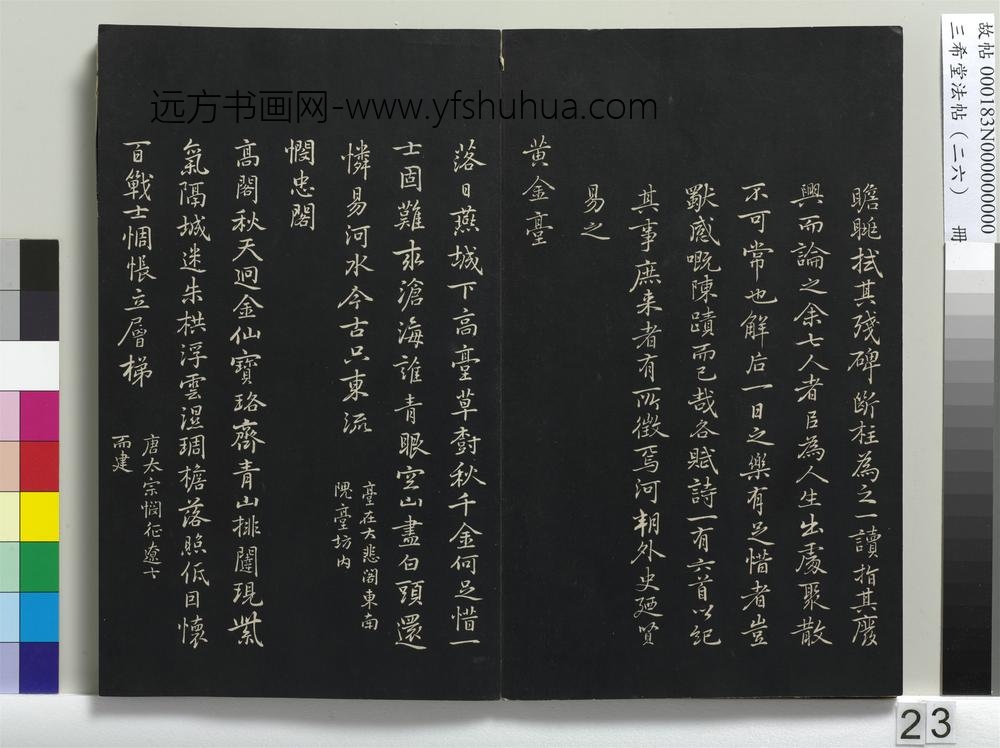 瞻眺拭其殘碑斷柱為之一讀指其廢
興而論之余七人者臣為人生出處聚散
不可常也解后一日之樂有足惜者豈
歇感嘅陳蹟而已哉各賦詩一有六首以紀
其事庶来者有所徵焉河朔外史廼賢
易之
黄金臺
落日燕城下高臺草樹秋千金何足惜一
士固難求滄海誰青眼空山盡白頭還
憐易河水今古只東流
臺在大悲閣東南
隗臺坊内
憫忠閣
高閣秋天迥金仙寶珞齊青山排闥現紫
氣隔城迷朱栱浮雲濕琱檐落照低因懷
百戰士惆悵立層梯
唐太宗憫征遼士
而建
远方书画网-www.yfshuhua.com
故帖 000183N000000000
三希堂法帖（二六） 冊
23